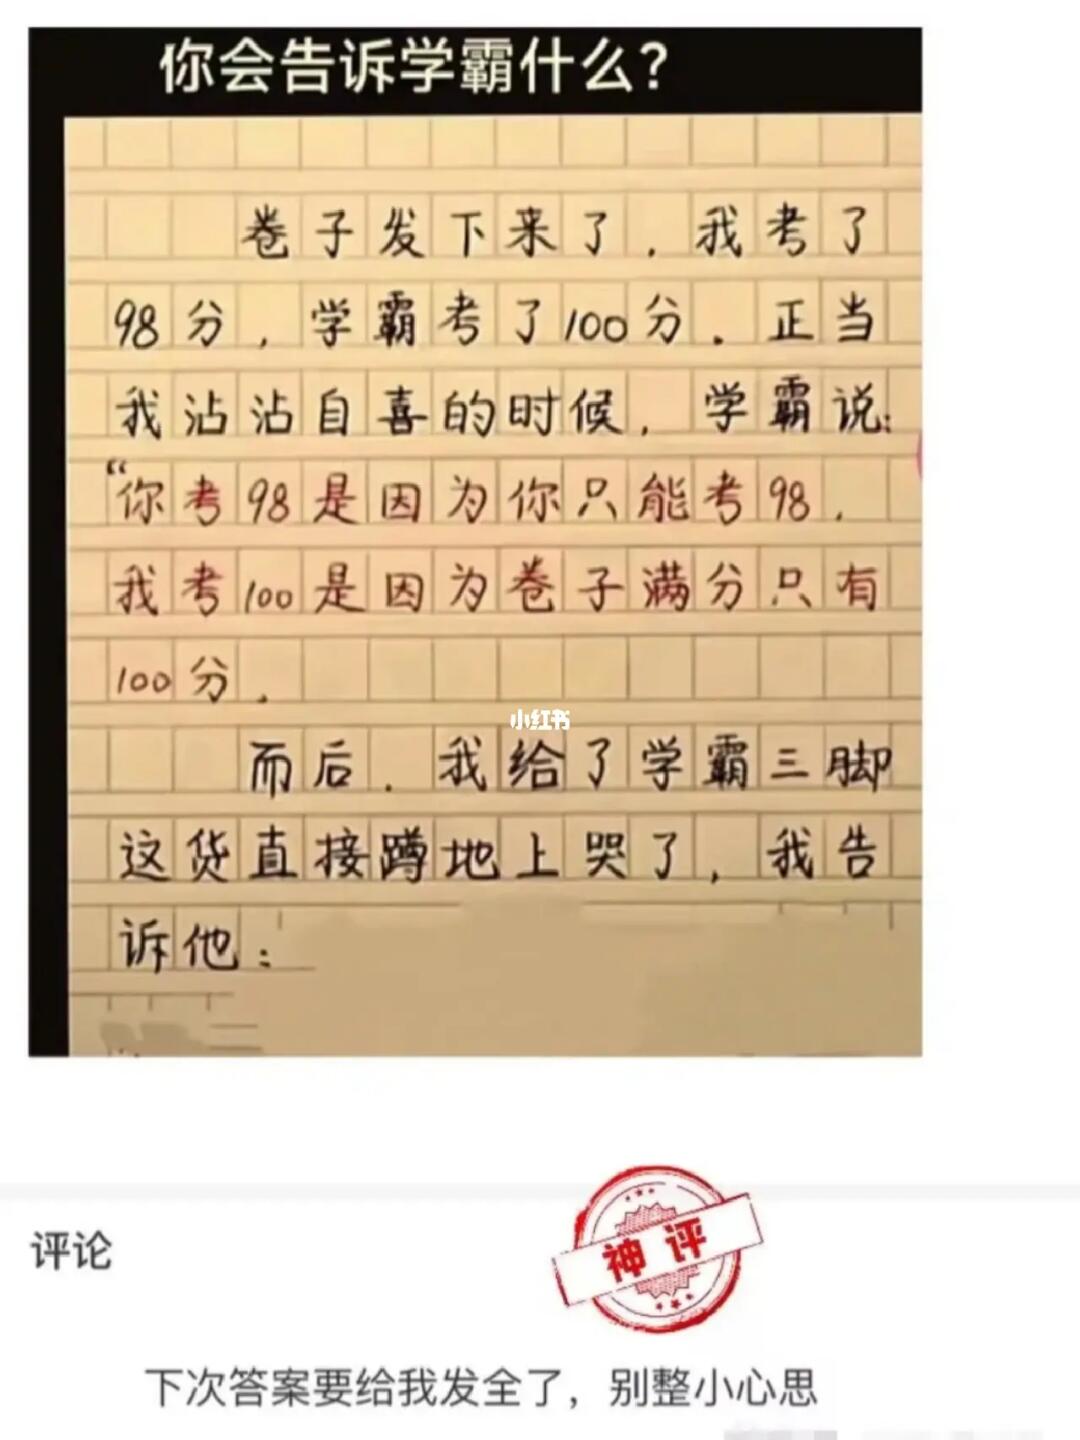 你会告诉学霸什么？
卷子发下来了，我考了
98分，学霸考了100分。正当
我沾沾自喜的时候，学霸说：
“你考98是因为你只能考98，
我考100是因为卷子满分只有
100分。
小红书
而后，我给了学霸三脚
这货直接蹲地上哭了，我告
诉他：
评论
神评
下次答案要给我发全了，别整小心思